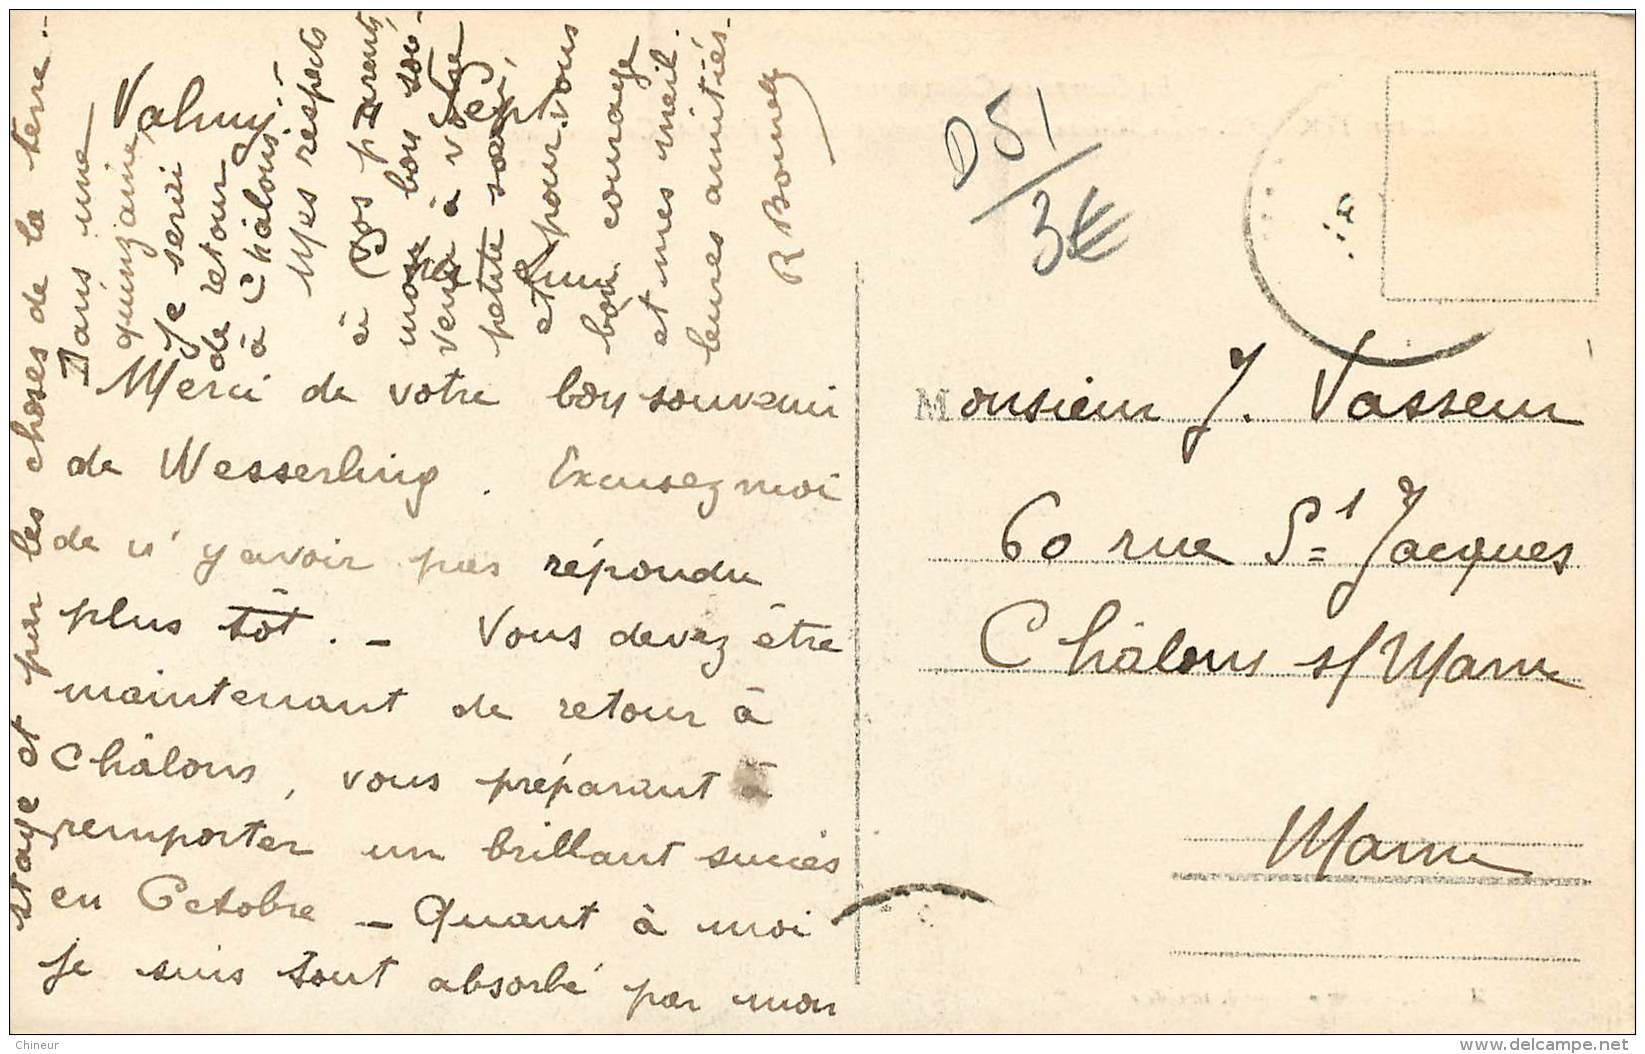 Valmy, Sept.
Cher Ami
Merci de votre bon souvenir
de Wesserling. Excusez moi
de n'y avoir pas répondu
plus tôt. - Vous devez être
maintenant de retour à
Châlons, vous préparant à
remporter un brillant succès
en Octobre - Quant à moi
je suis tout absorbé par mon
stage et par les choses de la terre..
Dans une
quinzaine,
je serai
de retour
à Châlons.
Mes respects
à vos parents,
mon bon sou-
venir à votre
petite sœur,
et pour vous
bon courage
et mes meil-
leures amitiés.
D51
3€
Monsieur J. Vasseur
60 rue St Jacques
Châlons s/Marne
Marne
Chineur
delcampe.net